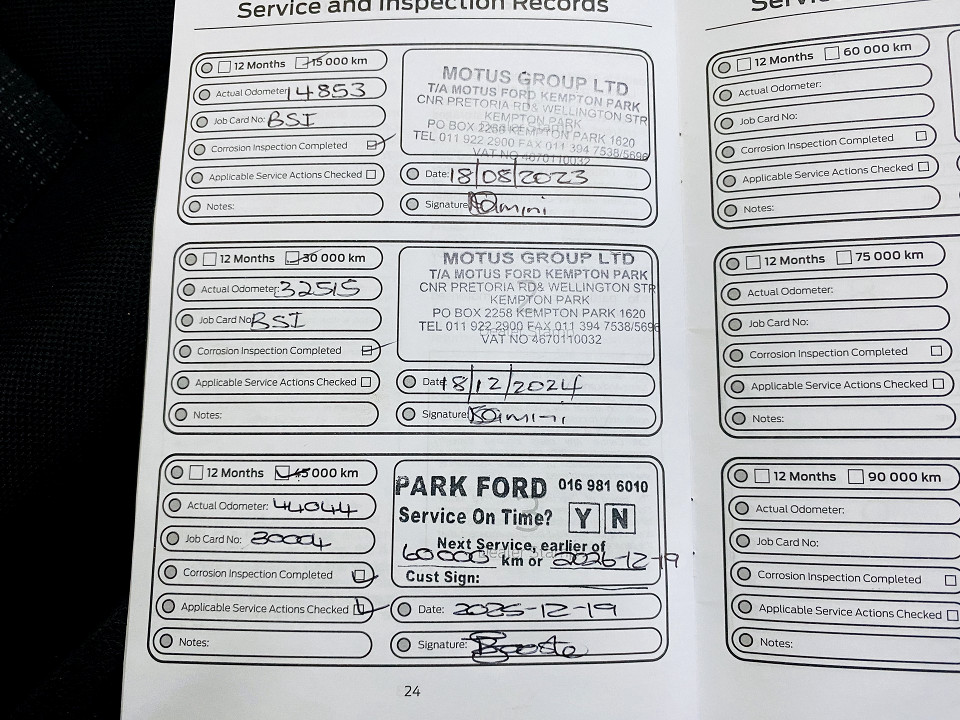 Service and Inspection Records
12 Months 15 000 km
Actual Odometer: 14853
Job Card No: BSI
Corrosion Inspection Completed
Applicable Service Actions Checked
Notes:
MOTUS GROUP LTD
T/A MOTUS FORD KEMPTON PARK
CNR PRETORIA RD & WELLINGTON STR
KEMPTON PARK
PO BOX 2258 KEMPTON PARK 1620
TEL 011 922 2900 FAX 011 394 7538/5696
VAT NO 4670110032
Date: 18/08/2023
Signature:
12 Months 30 000 km
Actual Odometer: 32515
Job Card No: BSI
Corrosion Inspection Completed
Applicable Service Actions Checked
Notes:
MOTUS GROUP LTD
T/A MOTUS FORD KEMPTON PARK
CNR PRETORIA RD & WELLINGTON STR
KEMPTON PARK
PO BOX 2258 KEMPTON PARK 1620
TEL 011 922 2900 FAX 011 394 7538/5696
VAT NO 4670110032
Date: 18/12/2024
Signature:
12 Months 45 000 km
Actual Odometer: 44044
Job Card No: 30004
Corrosion Inspection Completed
Applicable Service Actions Checked
Notes:
PARK FORD 016 981 6010
Service On Time? Y N
Next Service, earlier of
60000 km or 2026-12-19
Cust Sign:
Date: 2025-12-19
Signature:
24
12 Months 60 000 km
Actual Odometer:
Job Card No:
Corrosion Inspection Completed
Applicable Service Actions Checked
Notes:
12 Months 75 000 km
Actual Odometer:
Job Card No:
Corrosion Inspection Completed
Applicable Service Actions Checked
Notes:
12 Months 90 000 km
Actual Odometer:
Job Card No:
Corrosion Inspection Completed
Applicable Service Actions Checked
Notes: